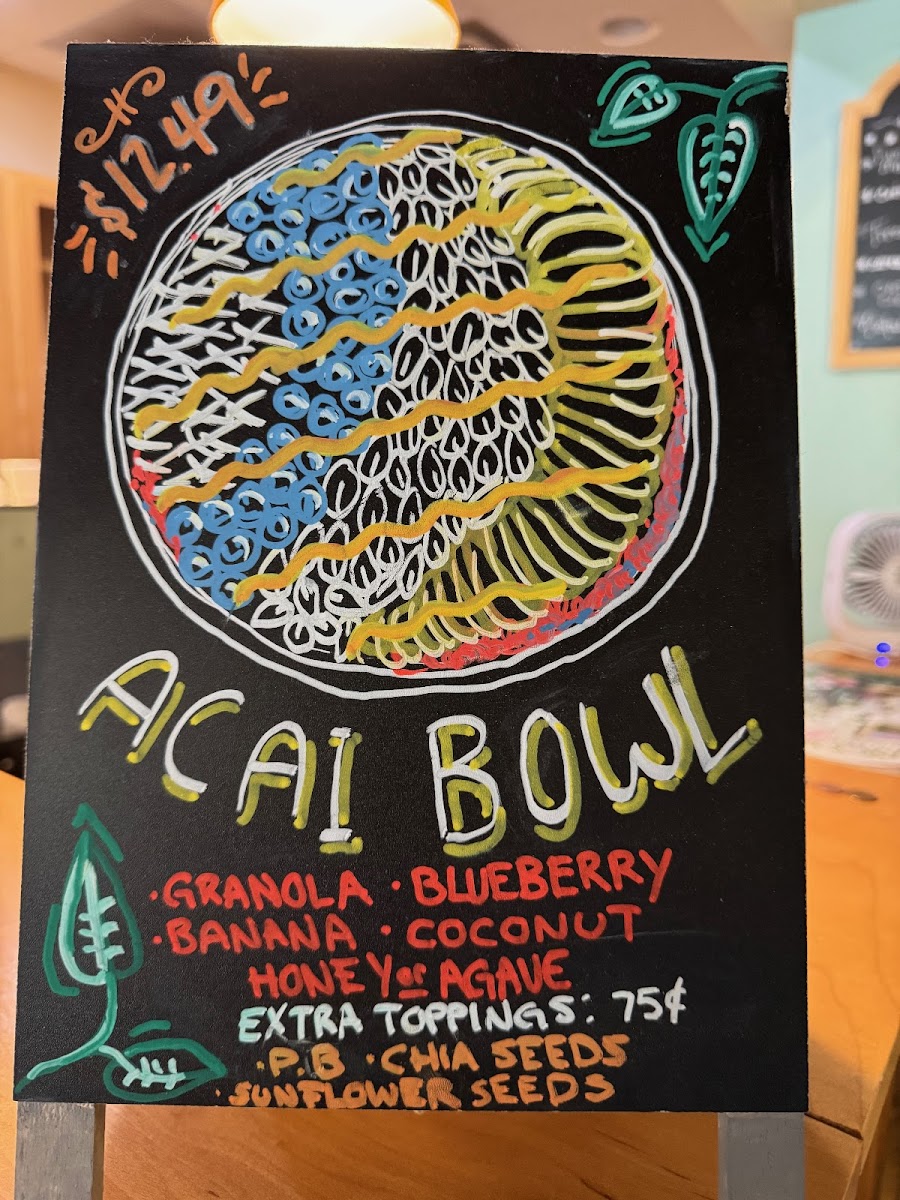 $12.49
ACAI BOWL
·GRANOLA ·BLUEBERRY
·BANANA ·COCONUT
HONEY or AGAVE
EXTRA TOPPINGS: 75¢
·P.B ·CHIA SEEDS
·SUNFLOWER SEEDS